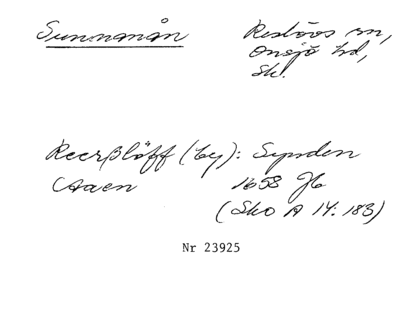 Sunnanån Reslövs sn,
Onsjö hd,
Sk.
Reerßlöff (by): Synden
Aaen 1658 Jb
(Sko A 14: 183)
Nr 23925